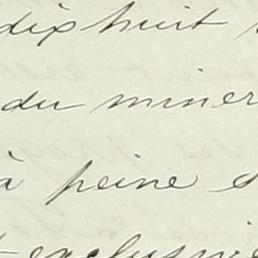 dix huit
du miner
à peine
exclusive